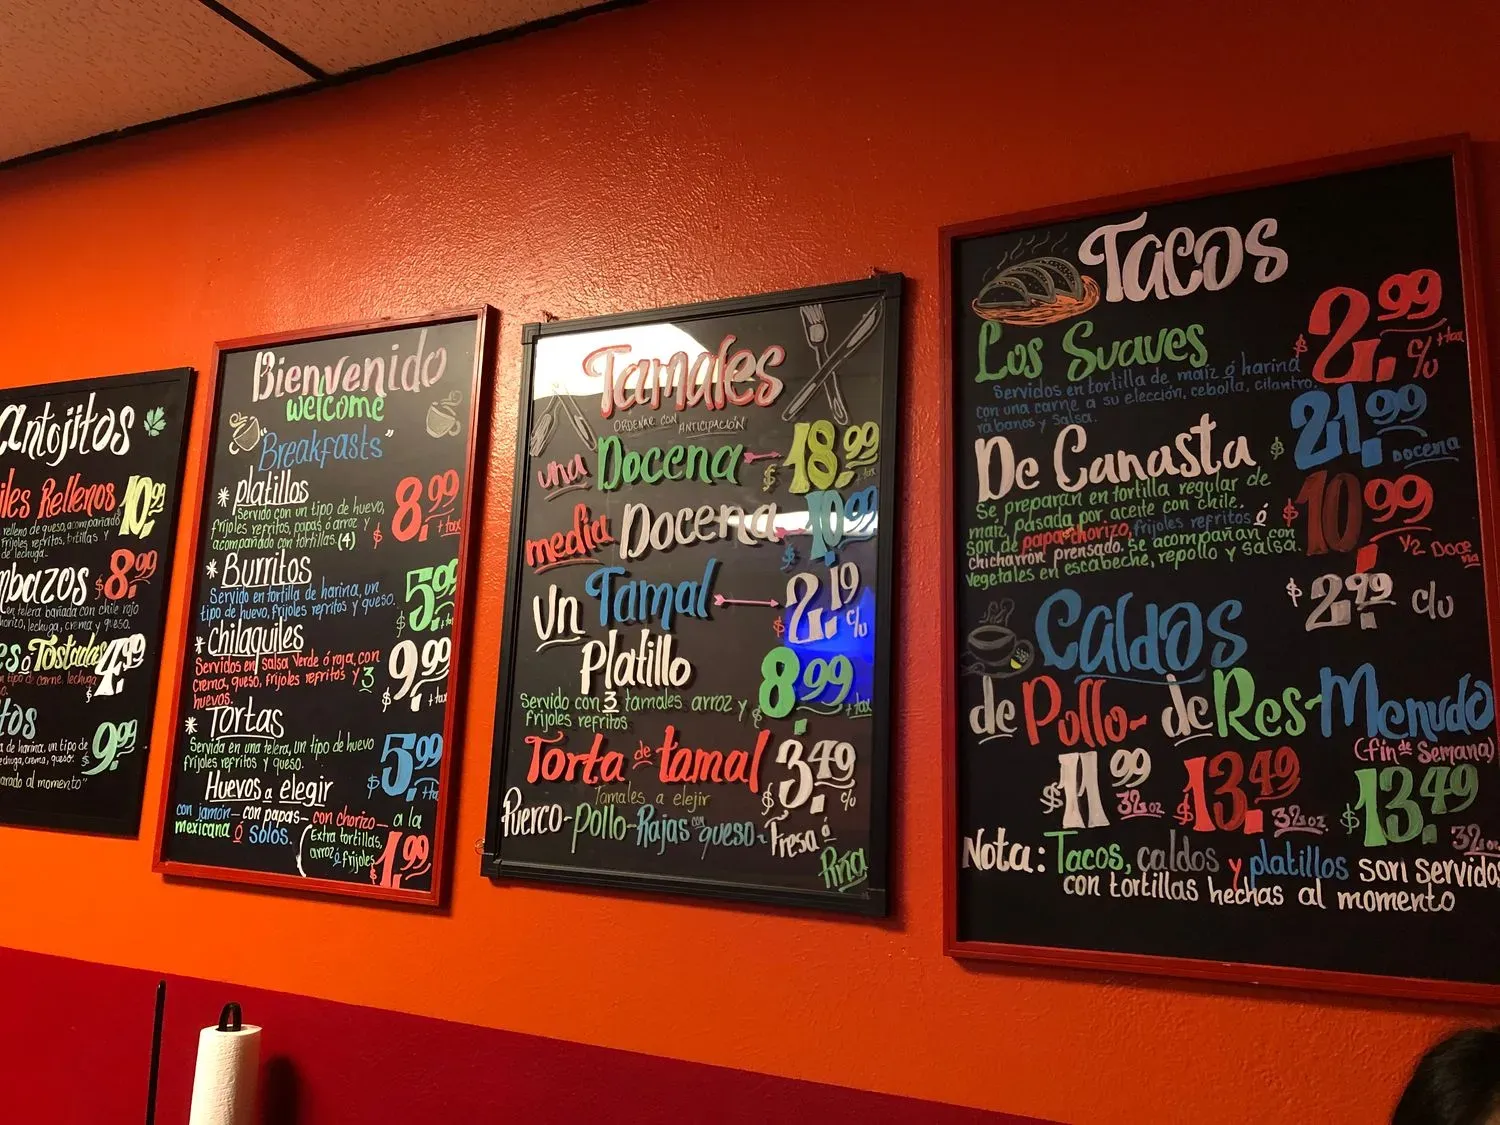 Antojitos
iles Rellenos 10.99
relleno de queso, acompañado
frijoles refritos, tortillas y
de lechuga.
mbazos $8.99
en telera bañada con chile rojo
horizo, lechuga, crema y queso.
es ó Tostadas $4.99
tipo de carne, lechuga
tos $9.99
de harina, un tipo de
chuga, crema, queso.
arado al momento"
Bienvenido
welcome
"Breakfasts"
* platillos $8.99 + tax
Servido con un tipo de huevo,
frijoles refritos, papas ó arroz y
acompañado con tortillas.(4)
* Burritos $5.99 + tax
Servido en tortilla de harina, un
tipo de huevo, frijoles refritos y queso.
* chilaquiles $9.99 + tax
Servidos en salsa Verde ó roja, con
crema, queso, frijoles refritos y 3
huevos.
* Tortas $5.99 + tax
Servida en una telera, un tipo de huevo
frijoles refritos y queso.
Huevos a elegir
con jamón - con papas - con chorizo - a la
mexicana ó solos.
(Extra tortillas,
arroz ó frijoles 1.99
Tamales
ORDENAR CON ANTICIPACIÓN
una Docena $18.99 + tax
media Docena $10.99
Un Tamal $2.19 c/u
Platillo $8.99 + tax
Servido con 3 tamales arroz y
frijoles refritos
Torta de tamal $3.49 c/u
Tamales a elejir
Puerco - pollo - Rajas con queso - Fresa ó
Piña
Tacos
Los Suaves $2.99 c/u + tax
Servidos en tortilla de maíz ó harina
con una carne a su elección, cebolla, cilantro,
rábanos y salsa.
De Canasta $21.99 Docena
Se preparan en tortilla regular de
maíz, pasada por aceite con chile.
son de papa-chorizo, frijoles refritos ó
chicharrón prensado. Se acompañan con
vegetales en escabeche, repollo y salsa.
$10.99 1/2 Docena
$2.49 c/u
Caldos
de Pollo - de Res - Menudo
(fin de Semana)
$11.99 32oz $13.49 32oz. $13.49 32oz
Nota: Tacos, caldos y platillos son servidos
con tortillas hechas al momento